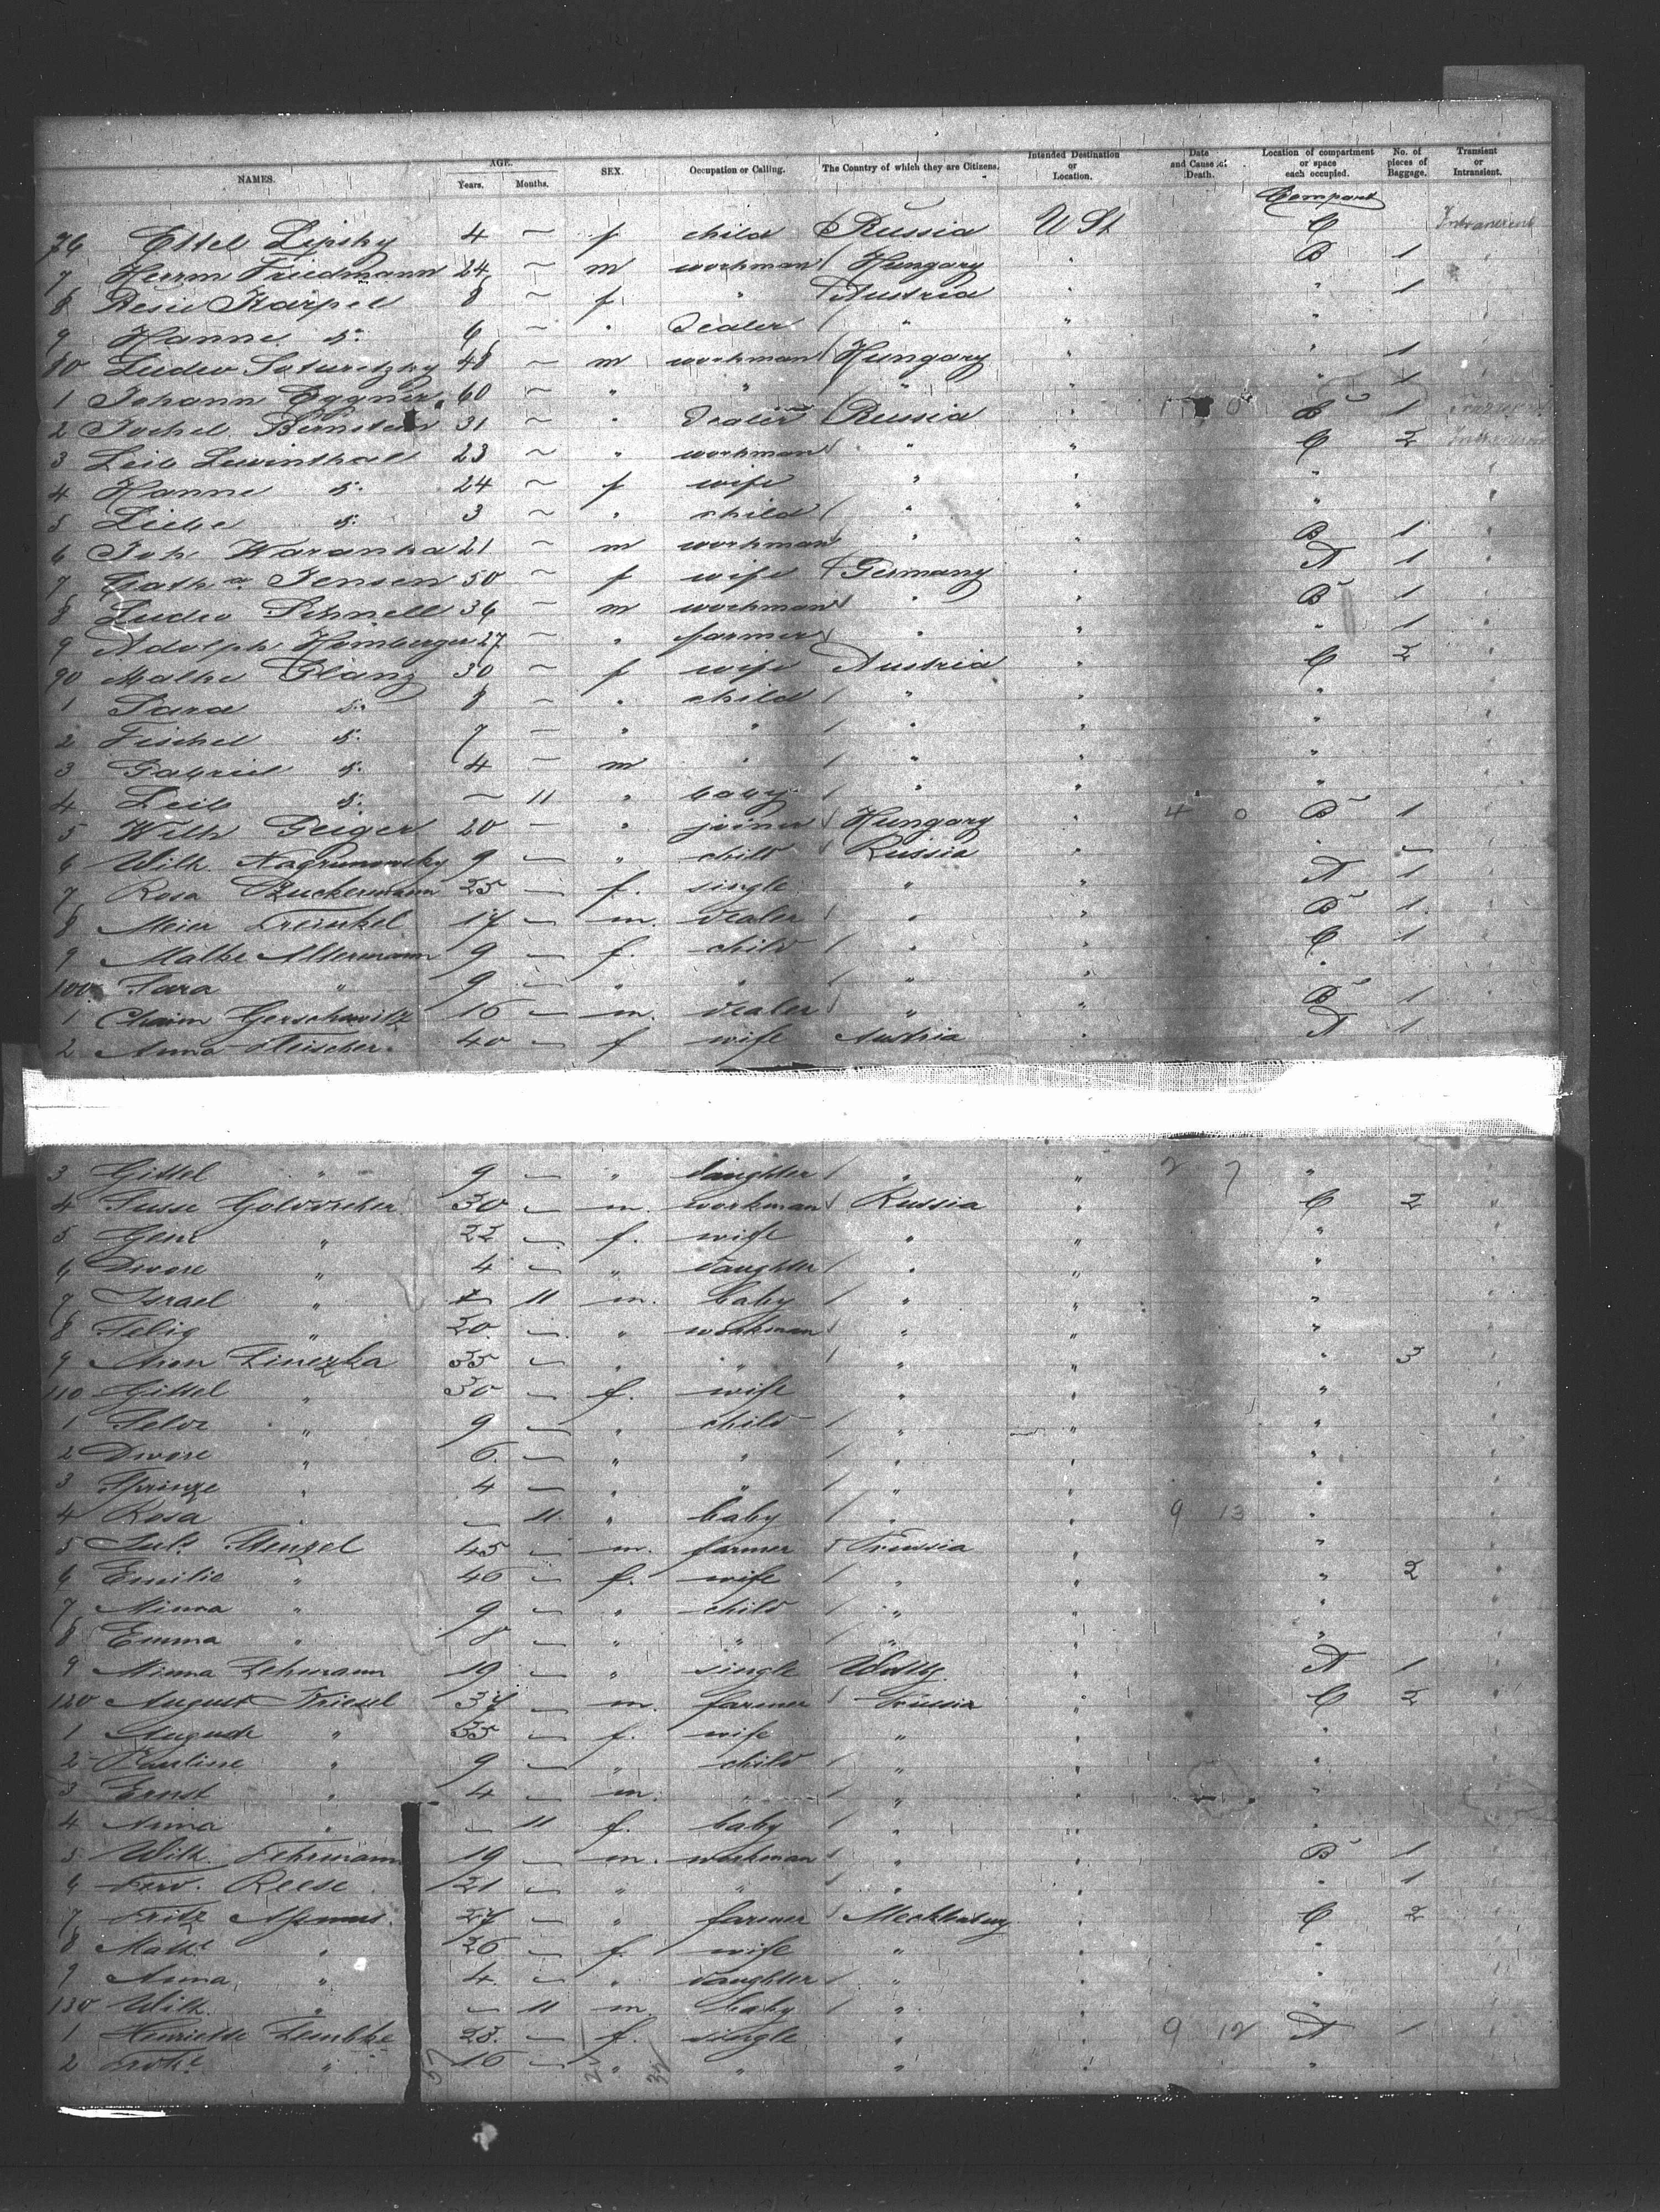 NAMES. AGE. Years. Months. SEX. Occupation or Calling. The Country of which they are Citizens. Intended Destination or Location. Date and Cause of Death. Location of compartment or space each occupied. No. of pieces of Baggage. Transient or Intransient.
Compart
76 Ettel Lipsky 4 ~ f child Russia U St C
7 Herrm Friedmann 24 ~ m workman Hungary " B 1 "
8 Karpel 8 ~ f " Austria " " 1 "
9 Hanne d. 6 ~ " Dealer " " " "
80 Ludw 48 ~ m workman Hungary " " 1 "
1 Johann Eggner 60 ~ " " " " " 1
2 Jochel Bernstein 31 ~ " Dealer Russia " B 1
3 Leib Lewinthal 23 ~ " workman " " C 2
4 Hanne d. 24 ~ f wife " " " "
5 Liebe d. 3 ~ " child " " " "
6 Joh Waranka 21 ~ m workman " " B 1 "
7 Cath a Jensen 50 ~ f wife Germany " A 1 "
8 Ludw Schnell 36 ~ m workman " " B 1 "
9 Adolph Homberger 27 ~ " farmer " " " 1 "
90 Malke Glanz 30 ~ f wife Austria " C 2 "
1 Sara d. 8 ~ " child " " " "
2 Fischel d. 7 — " " " " " "
3 Gabriel d. 4 — m " " " " "
4 Leib d. ~ 11 " baby " " " "
5 Wilh Geiger 20 — " joiner Hungary " 4 0 B 1 "
6 Wilh. 9 — " child Russia " " — "
7 Rosa Zuckermann 25 — f. single " " A 1 "
8 Meier Freinkel 17 — m. dealer " " B 1 "
9 Malke Altermann 9 — f. child " " C 1 "
100 Sara " 9 — " " " " " "
1 Chaim Gerschowitz 16 — m. dealer " " B 1 "
2 Anna Fleischer 40 — f wife Austria " A 1 "
3 Gittel " 9 — " daughter " " 2 7 " "
4 30 — m. workman Russia " C 2 "
5 " 22 — f. wife " " " "
6 Dwore " 4 — " daughter " " " "
7 Israel " 11 m. baby " " " "
8 Selig " 20 — " workman " " " "
9 Aron 35 — " " " " " 3 "
110 Gittel " 30 — f. wife " " " "
1 " 9 — " child " " " "
2 Dwore " 6 — " " " " " "
3 Sprinze " 4 — " " " " " "
4 Rosa " — 11 " baby " " 9 13 " "
5 Jul. 45 — m. farmer Prussia " " "
6 Emilie " 46 — f. wife " " " 2 "
7 Minna " 9 — " child " " " "
8 Emma " 8 — " " " " " "
9 Minna Lehmann 19 — " single " A 1 "
120 August Kriesel 37 — m. farmer Prussia " C 2 "
1 Auguste " 35 — f. wife " " " "
2 Pauline " 9 — " child " " " "
3 Ernst " 4 — m. " " " " "
4 Anna " — 11 f. baby " " " "
5 Wilh. Fehrmann 19 — m. workman " " B 1 "
6 Ferd. Reese 21 — " " " " " 1 "
7 Fritz 27 — " farmer Mecklenburg " C 2 "
8 Math. " 26 — f. wife " " " "
9 Anna " 4 — " daughter " " " "
130 Wilh. " — 11 m. baby " " " "
1 Henriette Lembke 23. — f. single " " 9 12 A 1 "
2 " 16 — " " " " " "